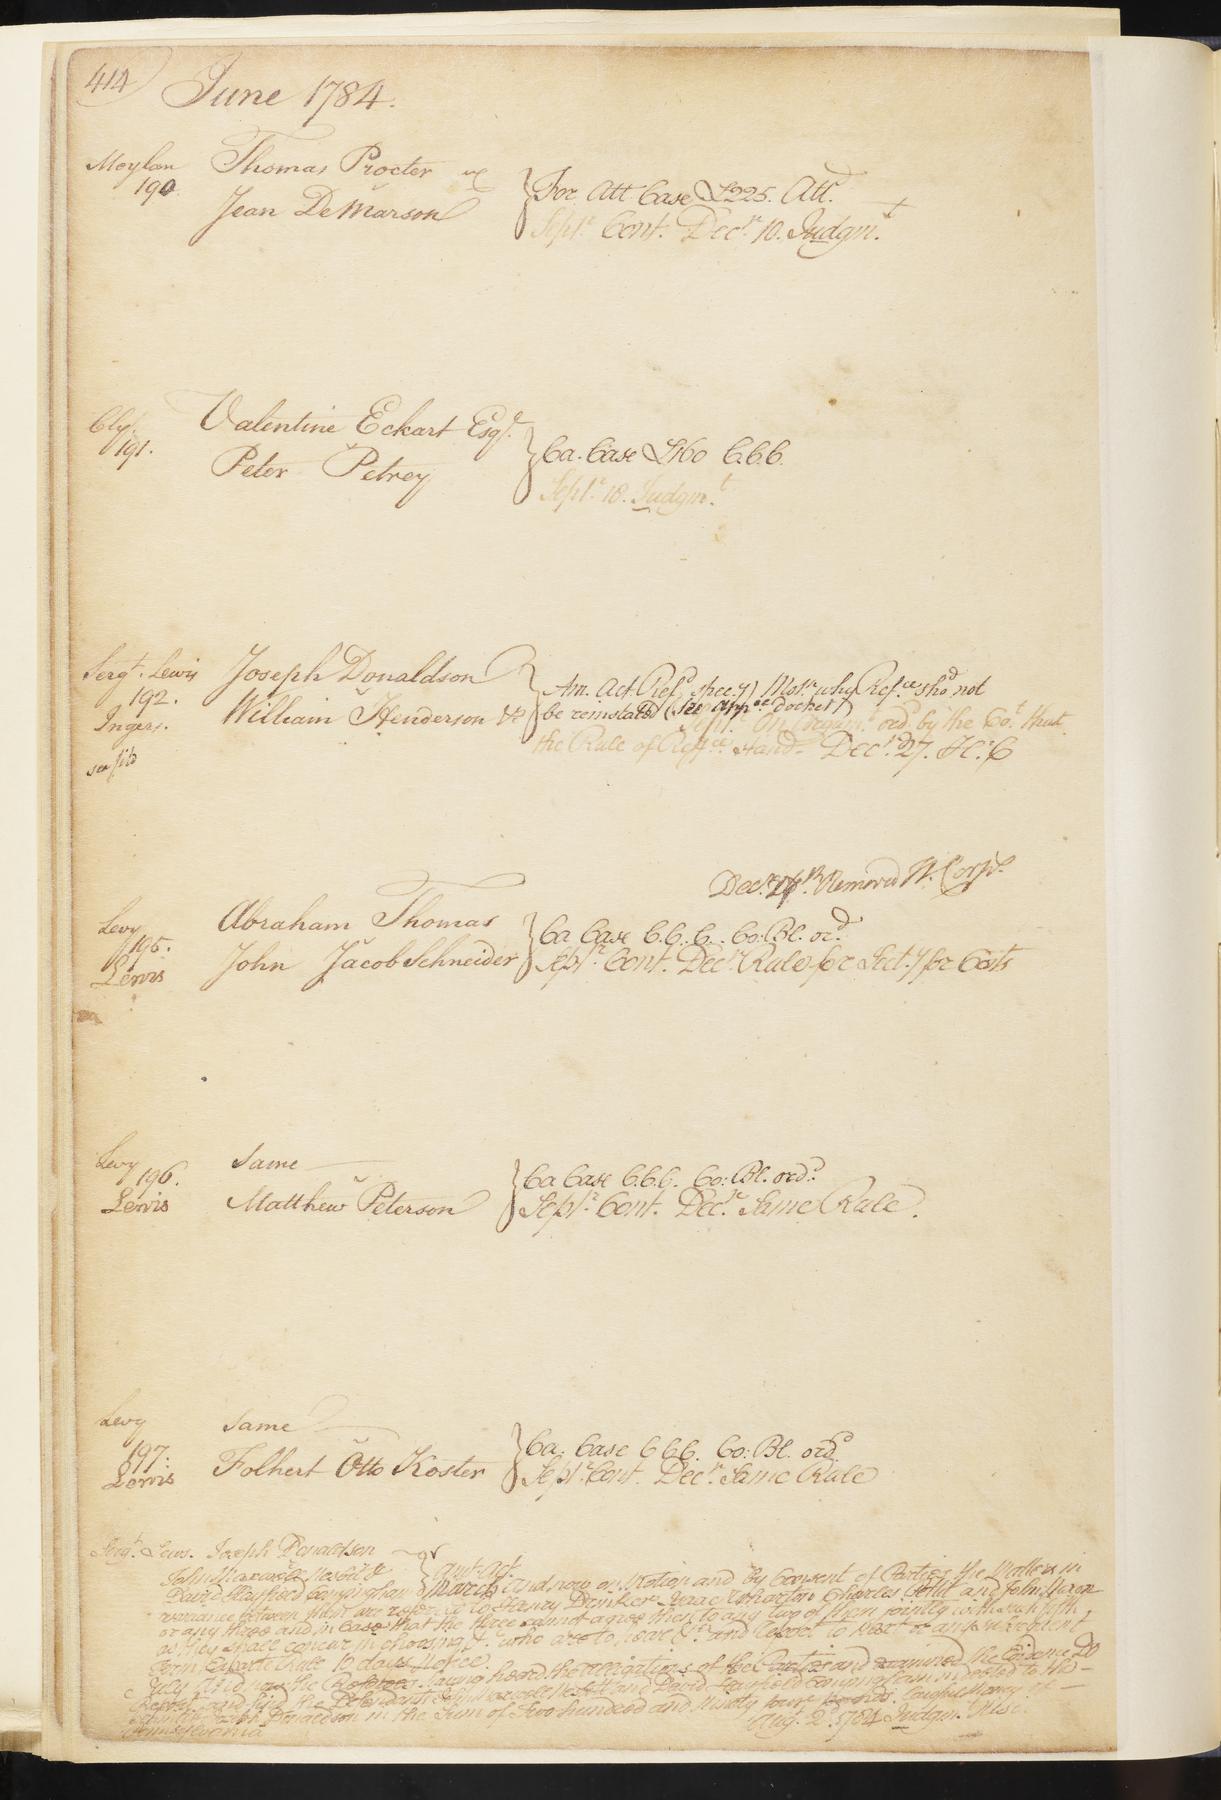 414 June 1784.
Moylan Thomas Procter
190
Jean DeMarson
For. Att Case £225. Att.d
Sept.r Cont. Dec.r 10. Judgm.t
Cly. Valentine Eckart Esq.r
191.
Peter Petrey
Ca. Case £160 C.C.C.
Sept.r 18. Judgm.t
Serg.t Lewis Joseph Donaldson
192.
Ingers. William Henderson
Am. Act. Ref.d Spec.y) Mot.n why Ref.ce sho.d not
be reinstated (See App.ce docket)
Sept.r On Argum.t ord. by the Co.t that
the Rule of Ref.ce stand Dec.r 27.
Dec.r Removed H. Corp.s
Levy Abraham Thomas
195.
Lewis John Jacob Schneider
Ca Case C.C.C. Co: Bl. or.d
Sept.r Cont. Dec.r Rule for Sect.y for Costs
Levy same
196.
Lewis Matthew Peterson
Ca Case C.C.C. Co: Bl. ord.
Sept.r Cont. Dec.r Same Rule.
Levy same
197.
Lewis Folkert Otto Koster
Ca. Case C C C. Co: Bl. ord.
Sept.r Cont. Dec.r Same Rule
Serg.t Lewis. Joseph Donaldson
John Maxwell Nesbitt &
David Hayfield Conyngham
March And now on Motion and by Consent of Parties the Matters in
variance between them are referred to Henry Drinker Isaac Wharton Charles and John
or any three and in Case that the three cannot agree then to any two of them jointly with such fifth
as they shall concur in choosing &c. who are to have &c. and Report to next or any subsequent
Term, Exparte Rule 10 days Notice.
July now the Referees having heard the allegations of the Parties and examined the Evidence Do
Report and find the Defendants John Maxwell Nesbitt and David Hayfield Conyngham indebted to the
Joseph Donaldson in the Sum of Two hundred and Ninety four pounds. lawful Money of
Pennsylvania
Aug.t 2.d 1784 Judgm.t Nisi.